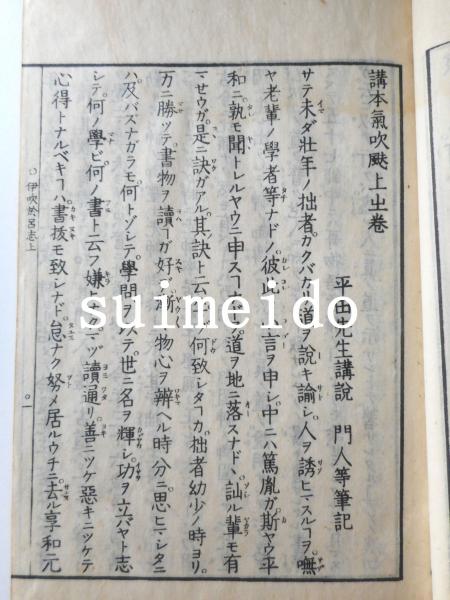 講本氣吹颫上之卷
平田先生講説 門人等筆記
サテ未ダ壯年ノ拙者ガカクバカリ道ヲ説キ諭シ人ヲ誘ヒマスルヿヲ嘸
ヤ老輩ノ學者等ナドノ彼此ト言ヲ申シ中ニハ篤胤ガ斯ヤウ平
和ニ孰モ聞トレルヤウニ申スヿヲ道ヲ地ニ落スナド訕ル輩モ有
マセウガ是ニ訣ガアル其訣ト云ヿハ何致シタヿカ拙者幼少ノ時ヨリ
万ニ勝ツテ書物ヲ讀ヿガ好デ漸々物心ヲ辨ヘル時分ニ思ヒマシタニ
ハ及バズナガラモ何トゾシテ學問ヲ以テ世ニ名ヲ輝シ功ヲ立バヤト志
シテ何ノ學ビ何ノ書ト云フ嫌ナクマヅ讀通リ善ニツケ惡キニツケテ
心得トナルベキヿハ書拔モ致シナド怠ナク努メ居ルウチニ去ル享和元
伊吹於呂志上
一
suimeido